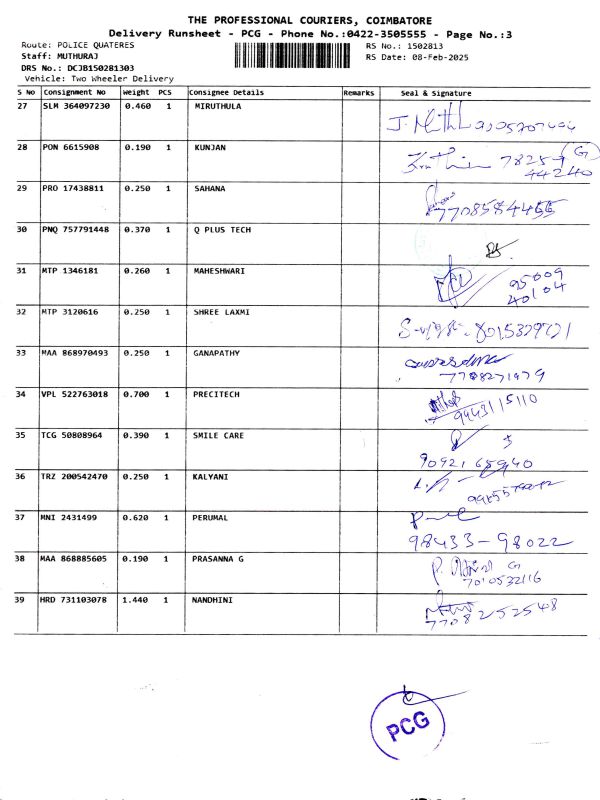 THE PROFESSIONAL COURIERS, COIMBATORE
Delivery Runsheet - PCG - Phone No.:0422-3505555 - Page No.:3
Route: POLICE QUATERES RS No.: 1502813
Staff: MUTHURAJ RS Date: 08-Feb-2025
DRS No.: DCJB150281303
Vehicle: Two Wheeler Delivery
S No Consignment No Weight PCS Consignee Details Remarks Seal & Signature
27 SLM 364097230 0.460 1 MIRUTHULA
28 PON 6615908 0.190 1 KUNJAN 78257 G
44240
29 PRO 17438811 0.250 1 SAHANA
7708584466
30 PNQ 757791448 0.370 1 Q PLUS TECH
31 MTP 1346181 0.260 1 MAHESHWARI 95009
40104
32 MTP 3120616 0.250 1 SHREE LAXMI
33 MAA 868970493 0.250 1 GANAPATHY
34 VPL 522763018 0.700 1 PRECITECH
9443115110
35 TCG 50808964 0.390 1 SMILE CARE
90921 65940
36 TRZ 200542470 0.250 1 KALYANI
37 MNI 2431499 0.620 1 PERUMAL
98433-98022
38 MAA 868885605 0.190 1 PRASANNA G
7010532116
39 HRD 731103078 1.440 1 NANDHINI
7708252548
PCG